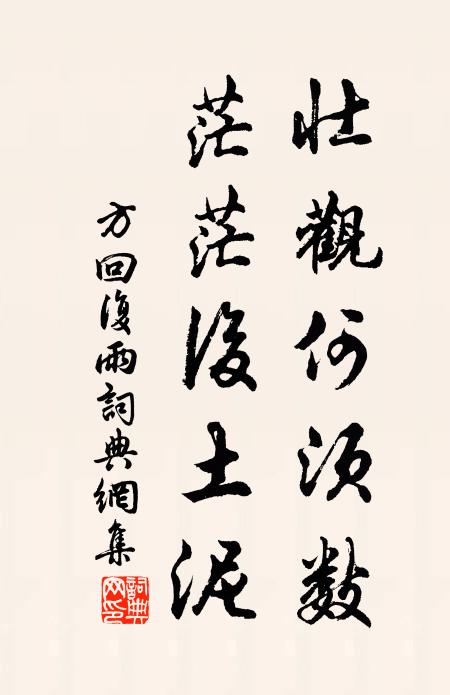 壯觀何須數
茫茫復土泥
方回復雨詞典網集
詞典網印